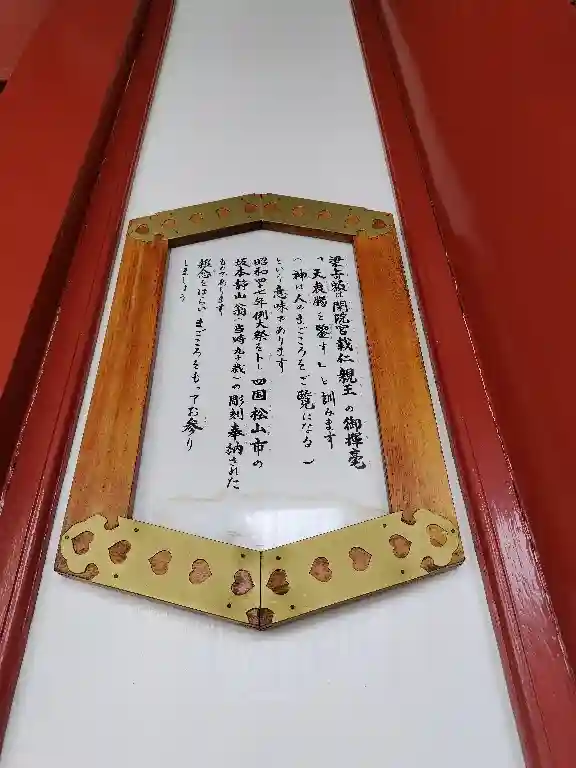 梁上額は閑院宮載仁親王の御揮毫
「天衷腸を鑒す」と訓みます
（神は人のまごころをご覧になる）
という意味であります
昭和四七年例大祭を卜し四国松山市の
坂本靜山翁（当時九十歳）の彫刻奉納された
ものであります
雑念をはらいまごころをもってお参り
しましょう